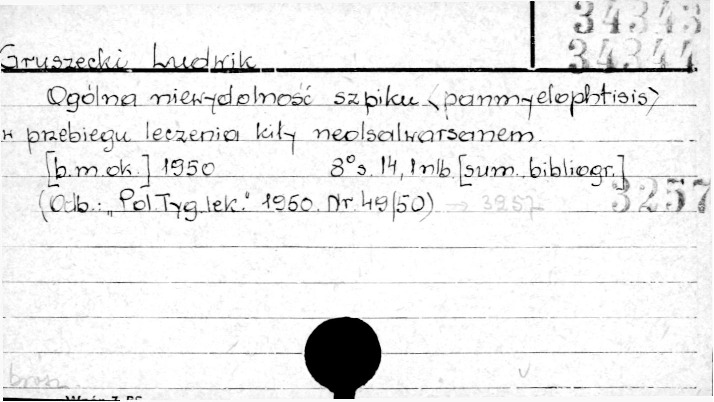 34343
34344
Gruszecki Ludwik
Ogólna niewydolność szpiku <panmyelophtisis>
w przebiegu leczenia kiły neolsalwarsanem.
[b.m.ok.] 1950 8° s. 14, 1 nlb. [sum. bibliogr.]
(Odb.: „Pol.Tyg.lek." 1950. Nr. 49/50) → 3257
3257
brosz.